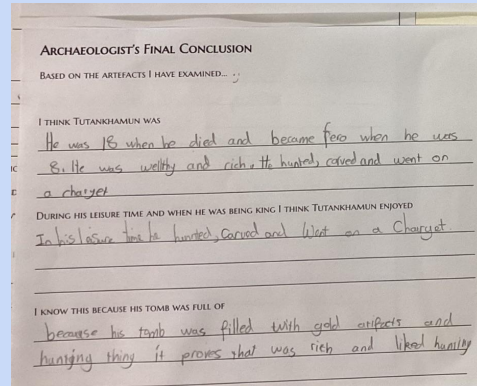 ARCHAEOLOGIST'S FINAL CONCLUSION
BASED ON THE ARTEFACTS I HAVE EXAMINED...
I THINK TUTANKHAMUN WAS
He was 18 when he died and became fero when he was
8. He was wellthy and rich. He hunted, carved and went on
a charyet
DURING HIS LEISURE TIME AND WHEN HE WAS BEING KING I THINK TUTANKHAMUN ENJOYED
In his leasure time he hunted, Carved and Went on a Charyet.
I KNOW THIS BECAUSE HIS TOMB WAS FULL OF
because his tomb was filled with gold artifacts and
huntging thing it proves that was rich and liked hunting